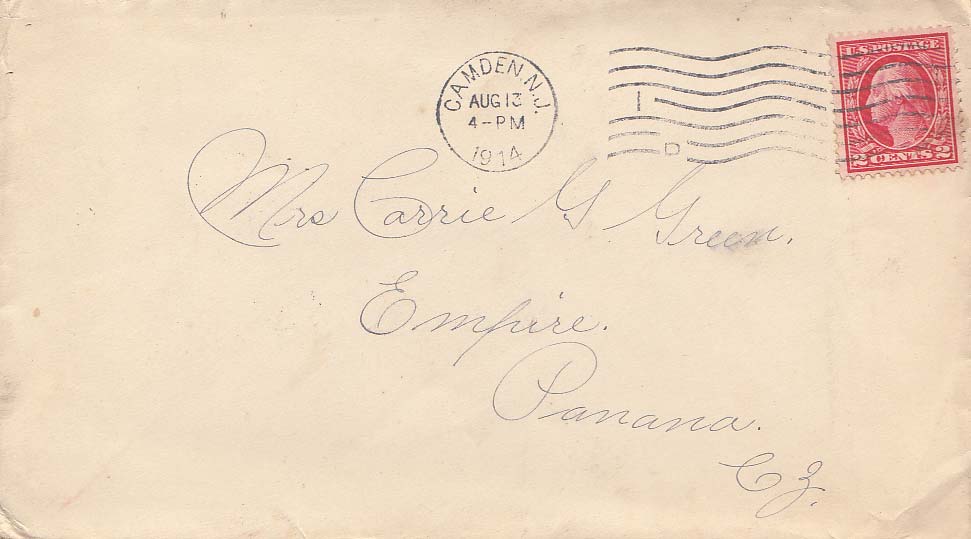 CAMDEN, N.J.
AUG 13
4-PM
1914
1
D
U.S. POSTAGE
2 CENTS 2
Mrs Carrie G Green.
Empire.
Panana.
C Z.